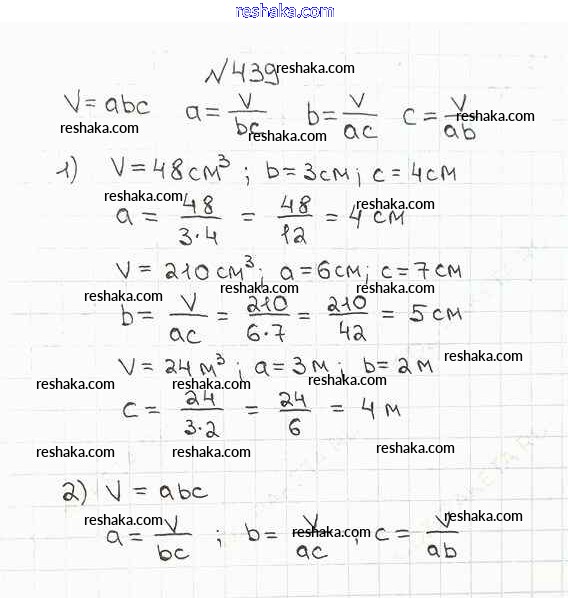 reshaka.com
№439 reshaka.com
V=abc a=V/bc b=V/ac c=V/ab
reshaka.com reshaka.com reshaka.com reshaka.com
1) V=48см³; b=3см; c=4см
reshaka.com reshaka.com
a = 48/3·4 = 48/12 = 4 см
reshaka.com reshaka.com
V= 210см³; a=6см; c=7см
reshaka.com reshaka.com reshaka.com
b= V/ac = 210/6·7 = 210/42 = 5см
V= 24м³; a=3м; b=2м
reshaka.com
reshaka.com reshaka.com reshaka.com
c = 24/3·2 = 24/6 = 4 м
reshaka.com reshaka.com reshaka.com
2) V = abc
reshaka.com reshaka.com reshaka.com
a= V/bc ; b= V/ac ; c= V/ab